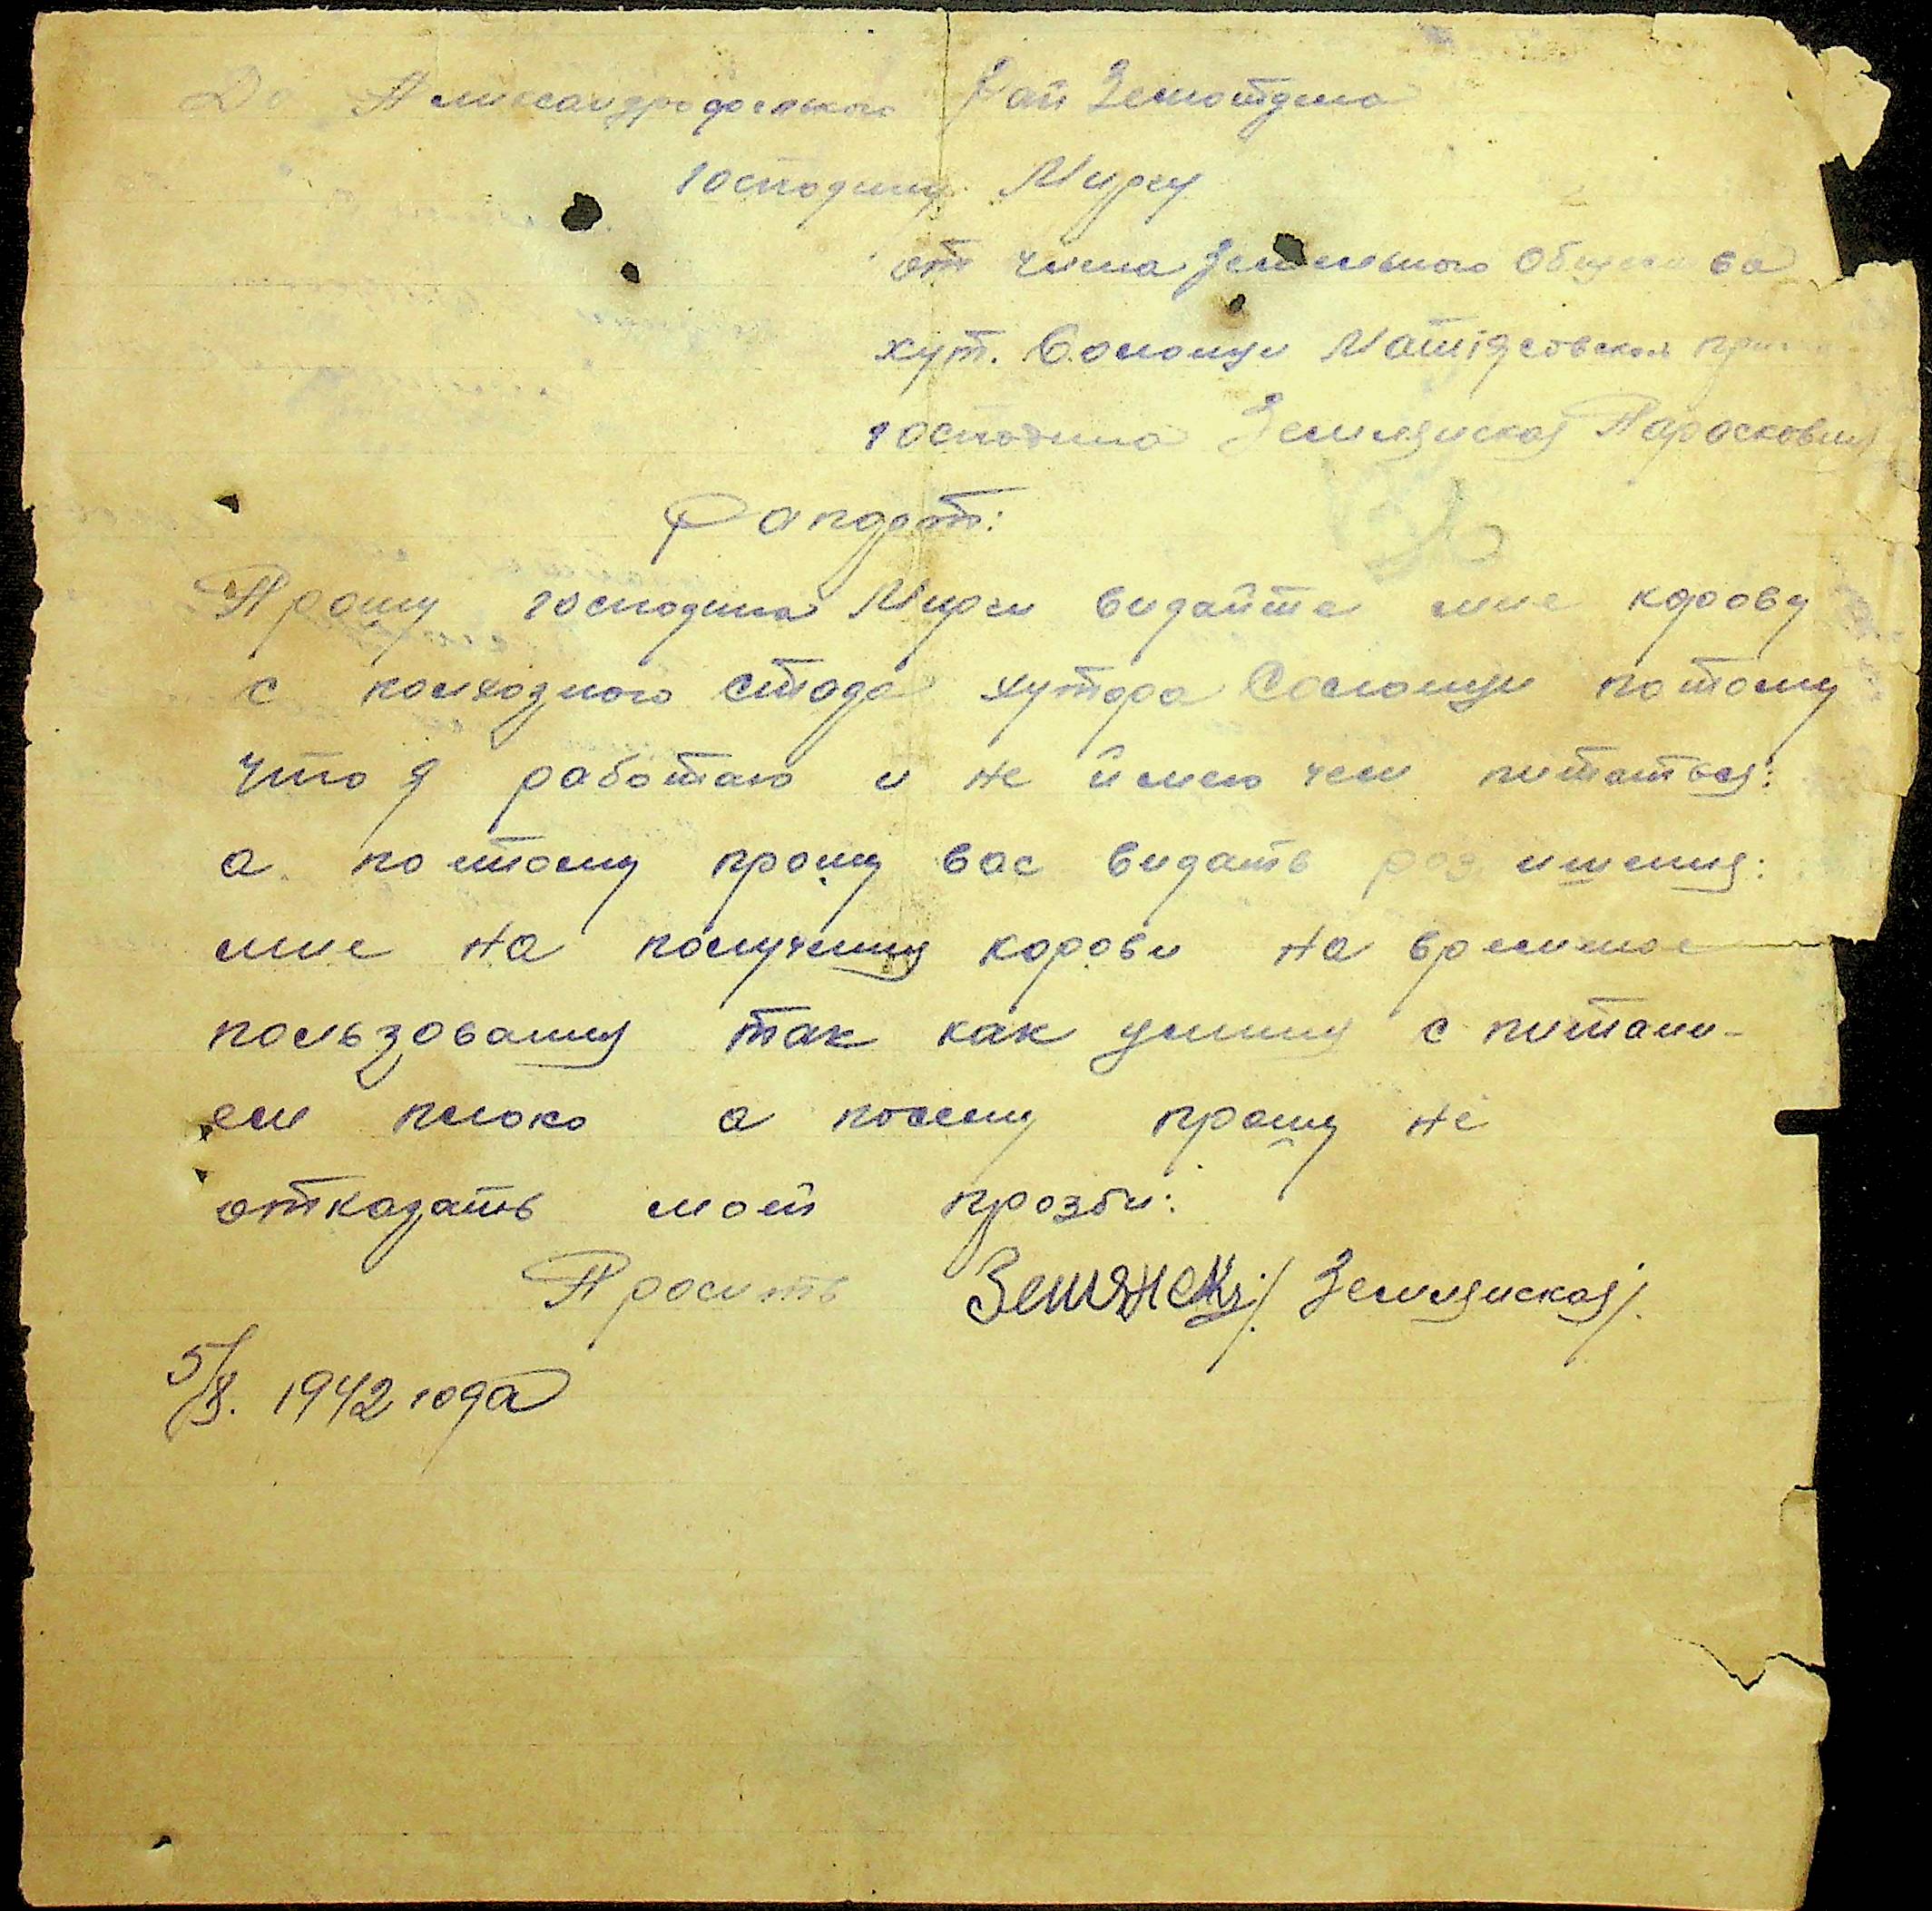 До Александродарского РайЗемотдела
господину Мирну
от члена Земельного Общества
хут. Солонци Матіясовской
господина Землянская Парасковия
Рапорт:
Прошу господина Мирни видайте мне корову
с колхозного стада хутора Солонци потому
что я работаю и не имею чем питаться:
а потому прошу вас видать розришения:
мне на получения корови на времиное
пользования так как у миня с питани-
ем плоко а посему прошу не
отказать моей прозби:
Просить Землянск /Землянская/.
5/X. 1942 года